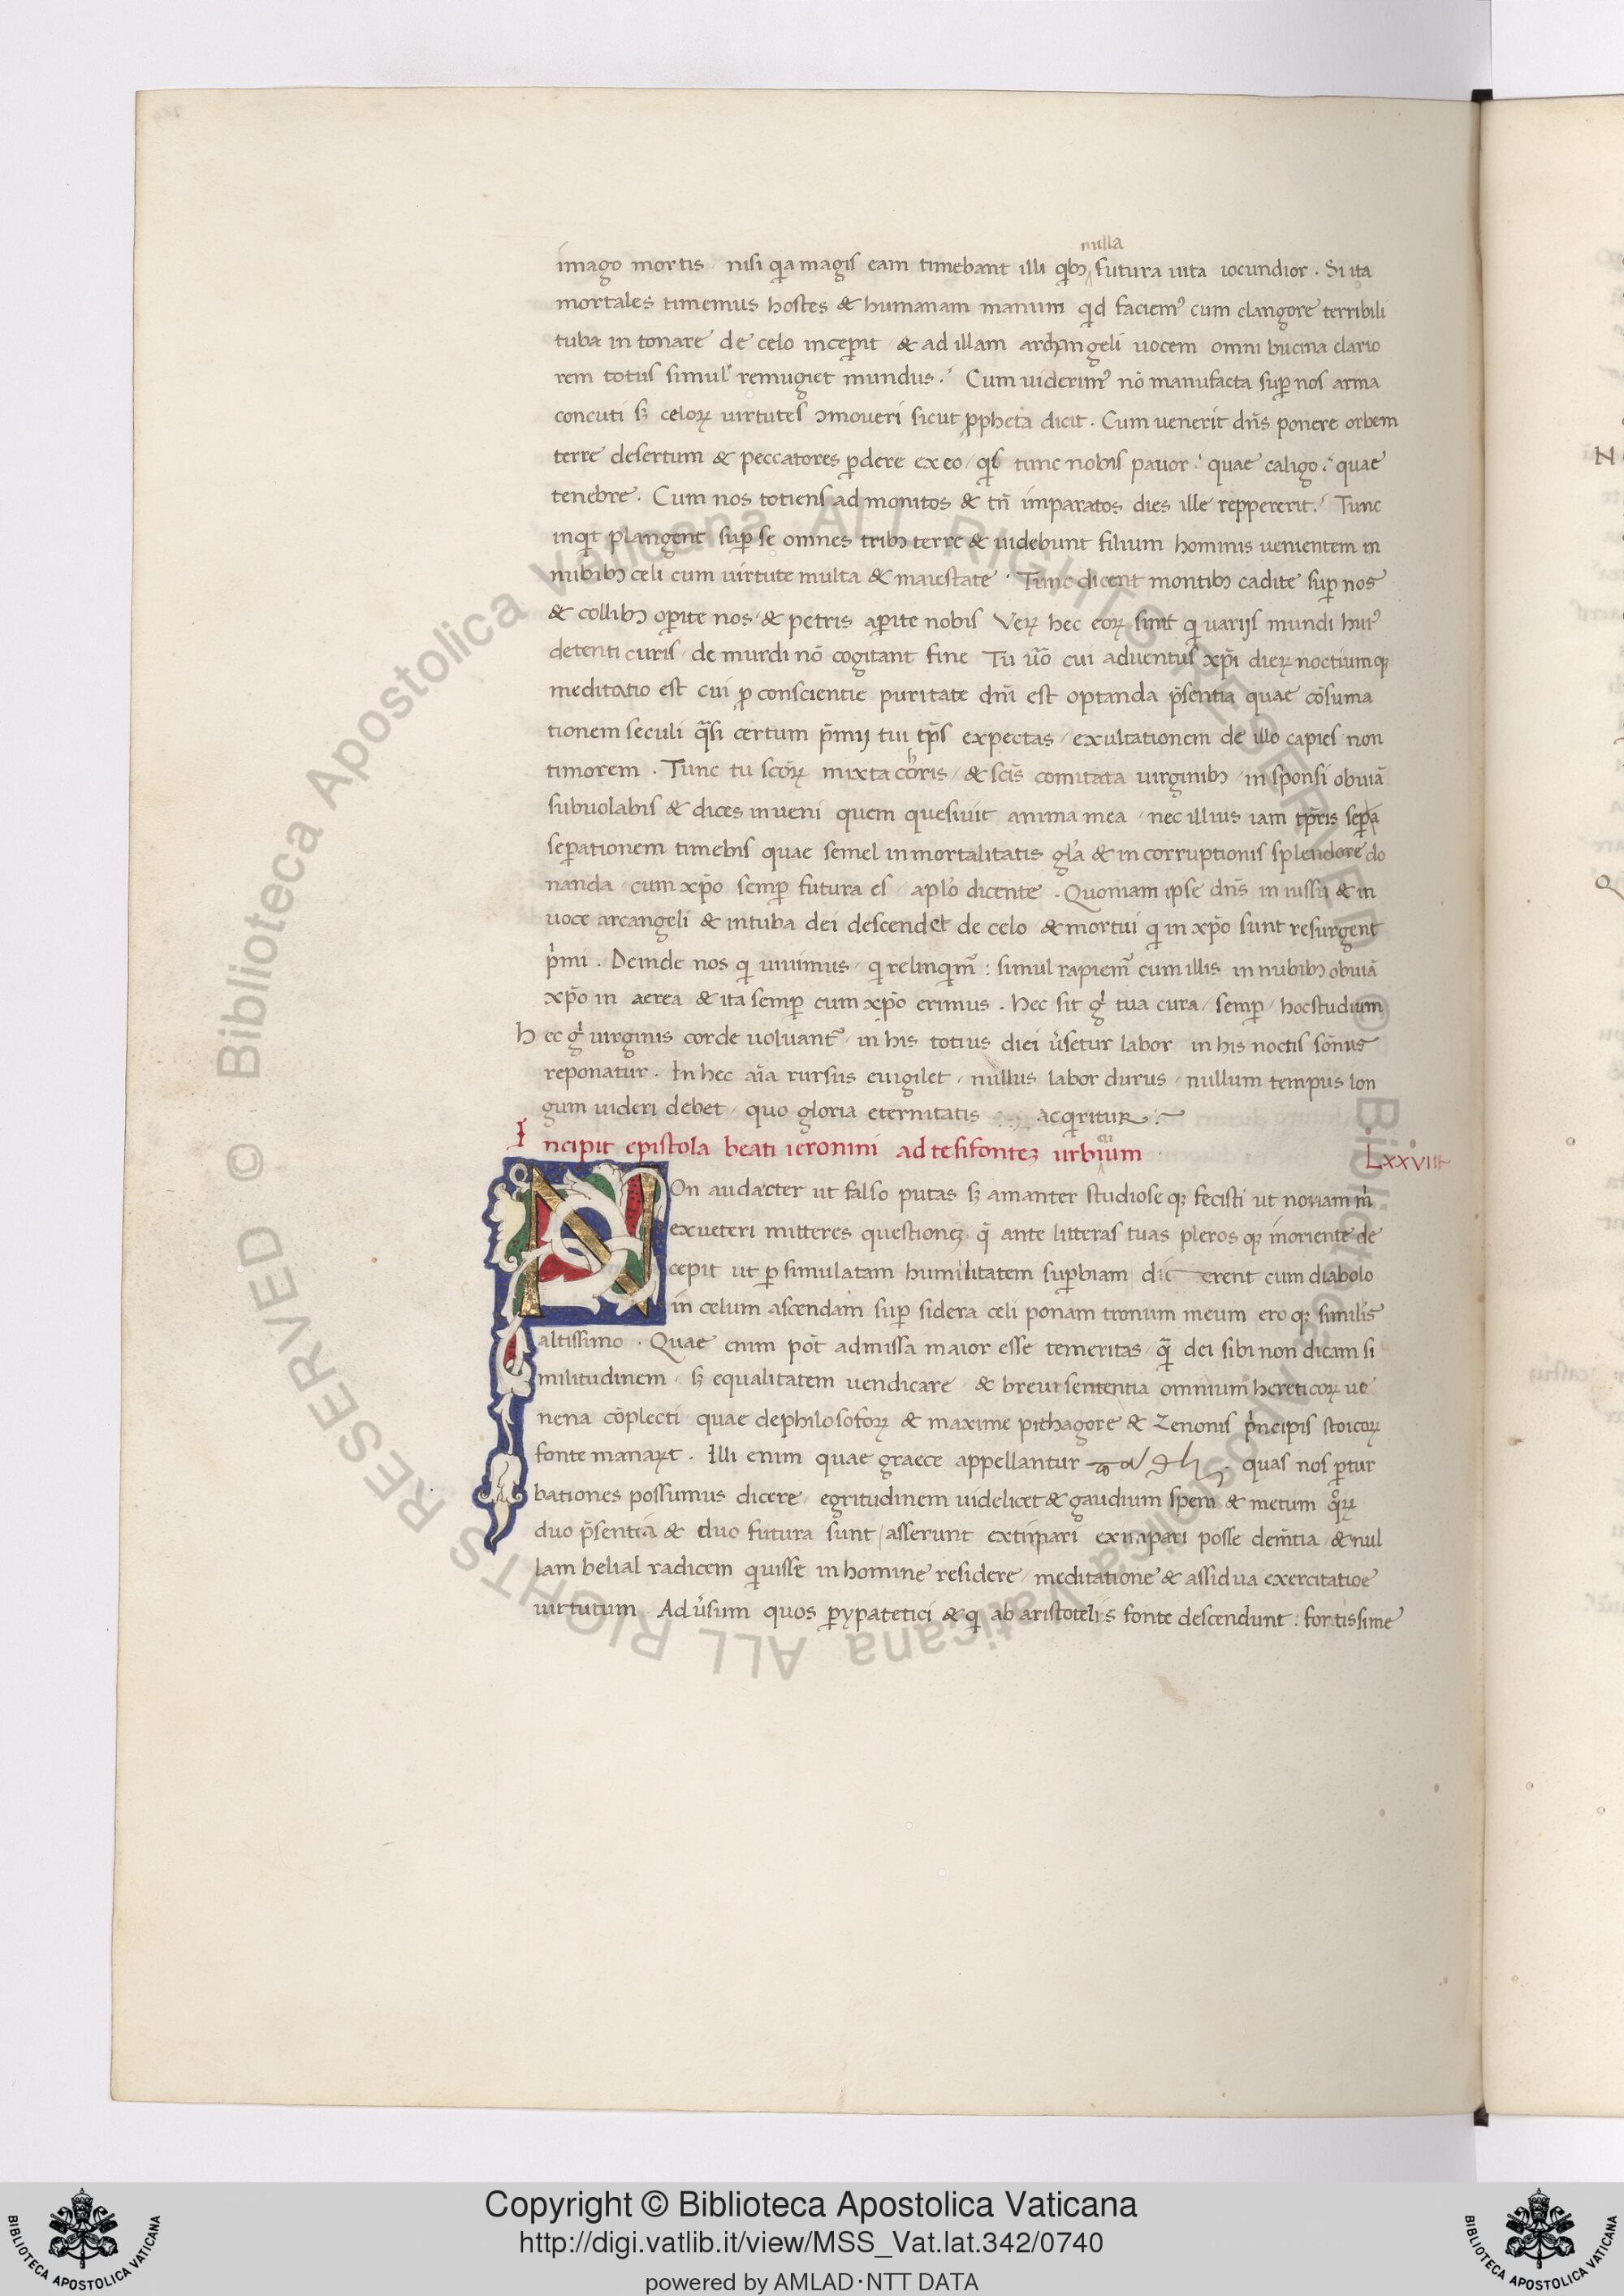 nulla
imago mortis / nisi q̃a magis eam timebant illi qbꝫ futura uita iocundior . Si ita
mortales timemus hostes & humanam manum qd faciemꝰ cum clangore terribili
tuba in tonare de celo inceperit & ad illam archangeli uocem omni bucina clario
rem totus simul remugiet mundus . Cum uiderimꝰ nō manufacta suꝑ nos arma
concuti sꝫ celoꝝ uirtutes ↄmoueri sicut ꝓpheta dicit . Cum uenerit dñs ponere orbem
terre desertum & peccatores ꝑdere ex eo / qs tunc nobis pauor . quae caligo . quae
tenebre . Cum nos totiens ad monitos & tñ imparatos dies ille reppererit . Tunc
inqt plangent suꝑ se omnes tribꝫ terre & uidebunt filium hominis uenientem in
nubibꝫ celi cum uirtute multa & maiestate . Tunc dicent montibꝫ cadite suꝑ nos
& collibꝫ oꝑite nos / & petris aꝑite nobis Veꝝ hec eoꝝ sunt q uarijs mundi huiꝰ
detenti curis / de mundi nō cogitant fine Tu ũo cui aduentus xp̃i dieꝝ noctiumqꝫ
meditatio est cui ꝓ conscientie puritate dñi est optanda p̃sentia quae cōsuma
tionem seculi q̃si certum p̃mij tui tp̃s expectas / exultationem de illo capies non
timorem . Tunc tu sc̃oꝝ mixta choris / & sc̃is comitata uirginibꝫ / in sponsi obuiā
subuolabis & dices inueni quem quesiuit anima mea / nec illius iam tp̃ris seꝑa
seꝑationem timebis quae semel inmortalitatis gl̃a & in corruptionis splendore do
nanda / cum xp̃o semꝑ futura es / apl̃o dicente . Quoniam ipse dñs in iussu & in
uoce arcangeli & in tuba dei descendet de celo & mortui q in xp̃o sunt resurgent
p̃mi . Deinde nos q uiuimus / q relinqmꝰ : simul rapiemꝰ cum illis in nubibꝫ obuiā
xp̃o in aerea & ita semꝑ cum xp̃o erimus . Hec sit g̊ tua cura / semꝑ / hoc studium
Hec g̊ uirginis corde uoluantᷣ / in his totius diei ũsetur labor in his noctis sōnus
reponatur . In hec aĩa rursus euigilet / nullus labor durus / nullum tempus lon
gum uideri debet / quo gloria eternitatis acqritur :~
Incipit epistola beati ieronimi ad tesifonteꝫ urbium
Lxxviii
NOn audacter ut falso putas sꝫ amanter studiose qꝫ fecisti ut nouam m̃
ex ueteri mitteres questioneꝫ q̃ ante litteras tuas pleros qꝫ in oriente de
cepit ut ꝑ simulatam humilitatem suꝑbiam dicerent cum diabolo
in celum ascendam suꝑ sidera celi ponam tronum meum ero qꝫ similis
altissimo . Quae enim pōt admissa maior esse temeritas / q̃ dei sibi non dicam si
militudinem / sꝫ equalitatem uendicare / & breui sententia omnium hereticoꝝ ue
nena cōplecti quae de philosofoꝝ & maxime pithagore & Zenonis p̃ncipis stoicoꝝ
fonte manaꝝt . Illi enim quae graece appellantur quas nos ꝑtur
bationes possumus dicere / egritudinem uidelicet & gaudium spem & metum qꝝ
duo p̃sentia & duo futura sunt / asserunt extirpari posse & nul
lam belial radicem quisse in homine residere / meditatione & assidua exercitatiōe
uirtutum . Adũsum quos ꝑypatetici & q ab aristotelis fonte descendunt : fortissime
Copyright © Biblioteca Apostolica Vaticana
http://digi.vatlib.it/view/MSS_Vat.lat.342/0740
powered by AMLAD·NTT DATA
BIBLIOTECA APOSTOLICA VATICANA
BIBLIOTECA APOSTOLICA VATICANA
© Biblioteca Apostolica Vaticana ALL RIGHTS RESERVED
© Biblioteca Apostolica Vaticana ALL RIGHTS RESERVED